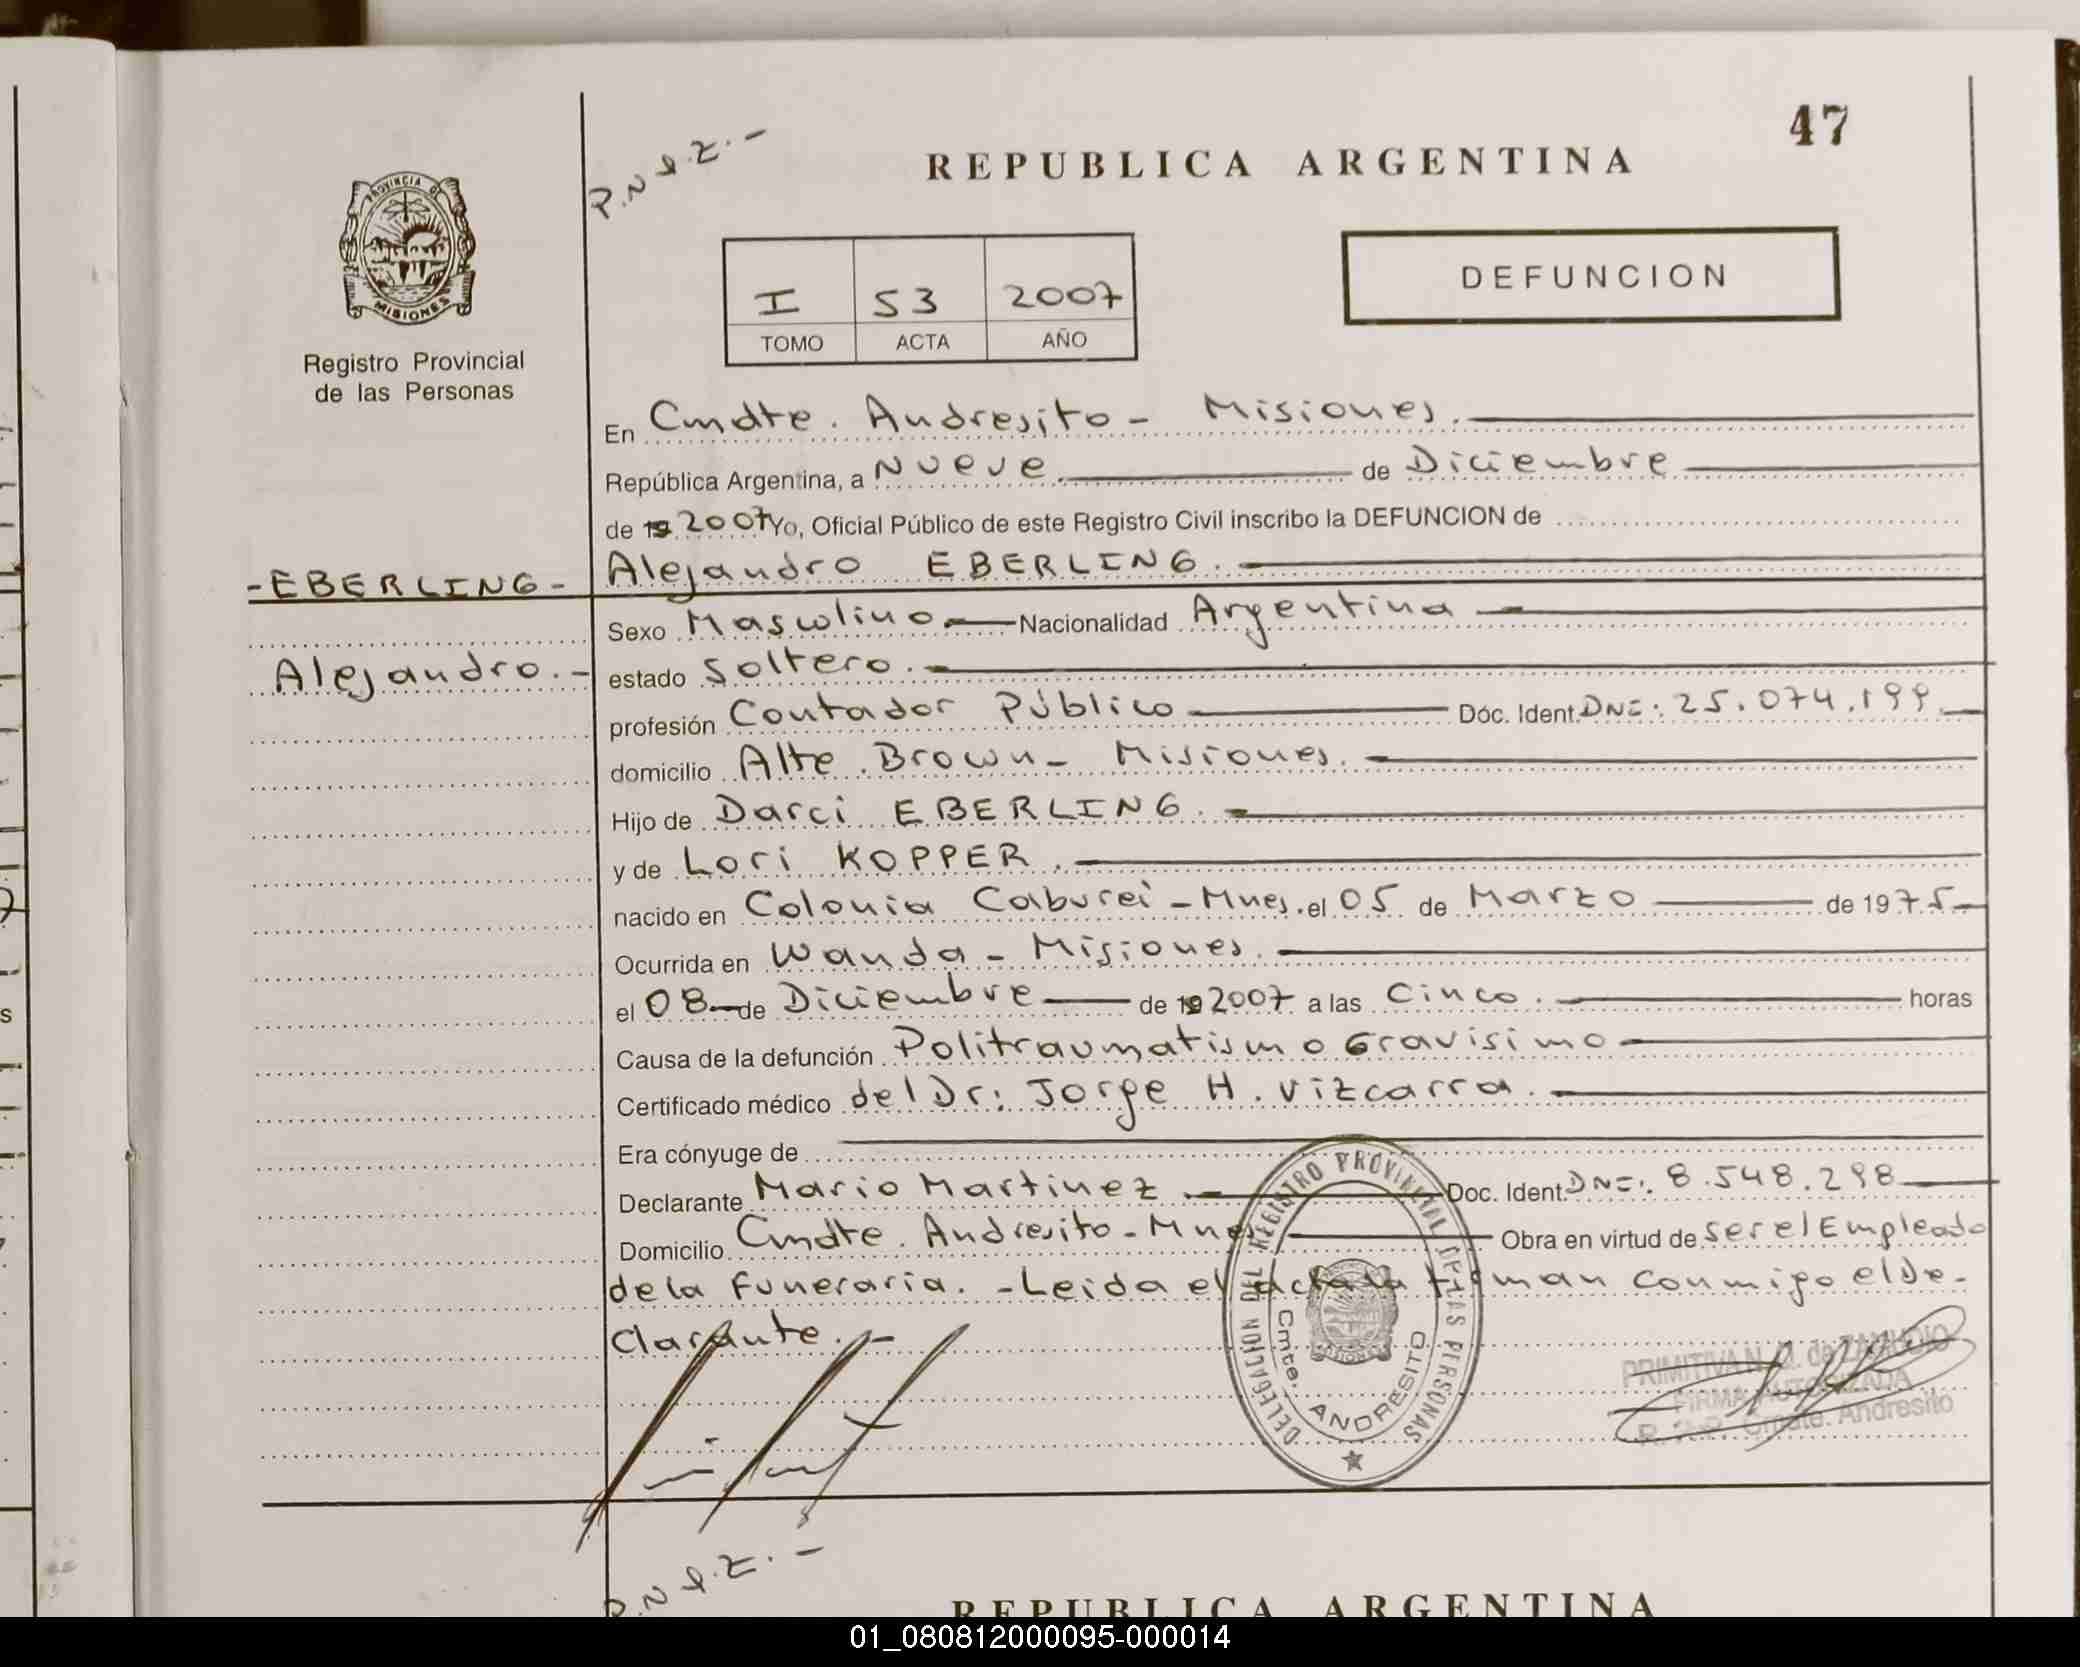 47
P.N.d.Z.-
REPUBLICA ARGENTINA
PROVINCIA DE
MISIONES
DEFUNCION
I 53 2007
TOMO ACTA AÑO
Registro Provincial
de las Personas
En Cmdte. Andresito - Misiones.
República Argentina, a Nueve de Diciembre
de 19 2007 Yo, Oficial Público de este Registro Civil inscribo la DEFUNCION de
-EBERLING- Alejandro EBERLING.
Sexo Masculino Nacionalidad Argentina
Alejandro.- estado Soltero.
profesión Contador Público Doc. Ident. DNI: 25.074.199
domicilio Alte. Brown - Misiones.
Hijo de Darci EBERLING.
y de Lori KOPPER.
nacido en Colonia Caburei - Mnes. el 05 de Marzo de 1975
Ocurrida en Wanda - Misiones.
el 08 de Diciembre de 19 2007 a las Cinco. horas
Causa de la defunción Politraumatismo Gravisimo
Certificado médico del Dr: Jorge H. Vizcarra.
Era cónyuge de
Declarante Mario Martinez Doc. Ident. DNI: 8.548.298
Domicilio Cmdte. Andresito - Mnes Obra en virtud de ser el Empleado
de la Funeraria. - Leida el acta la firman conmigo el De-
clarante.-
DELEGACION DEL REGISTRO PROVINCIAL DE LAS PERSONAS
Cmte. ANDRESITO
PRIMITIVA N. d. de ZAMUDIO
FIRMA AUTORIZADA
R. P. P. Cmdte. Andresito
P.N.d.Z.-
REPUBLICA ARGENTINA
01_080812000095-000014